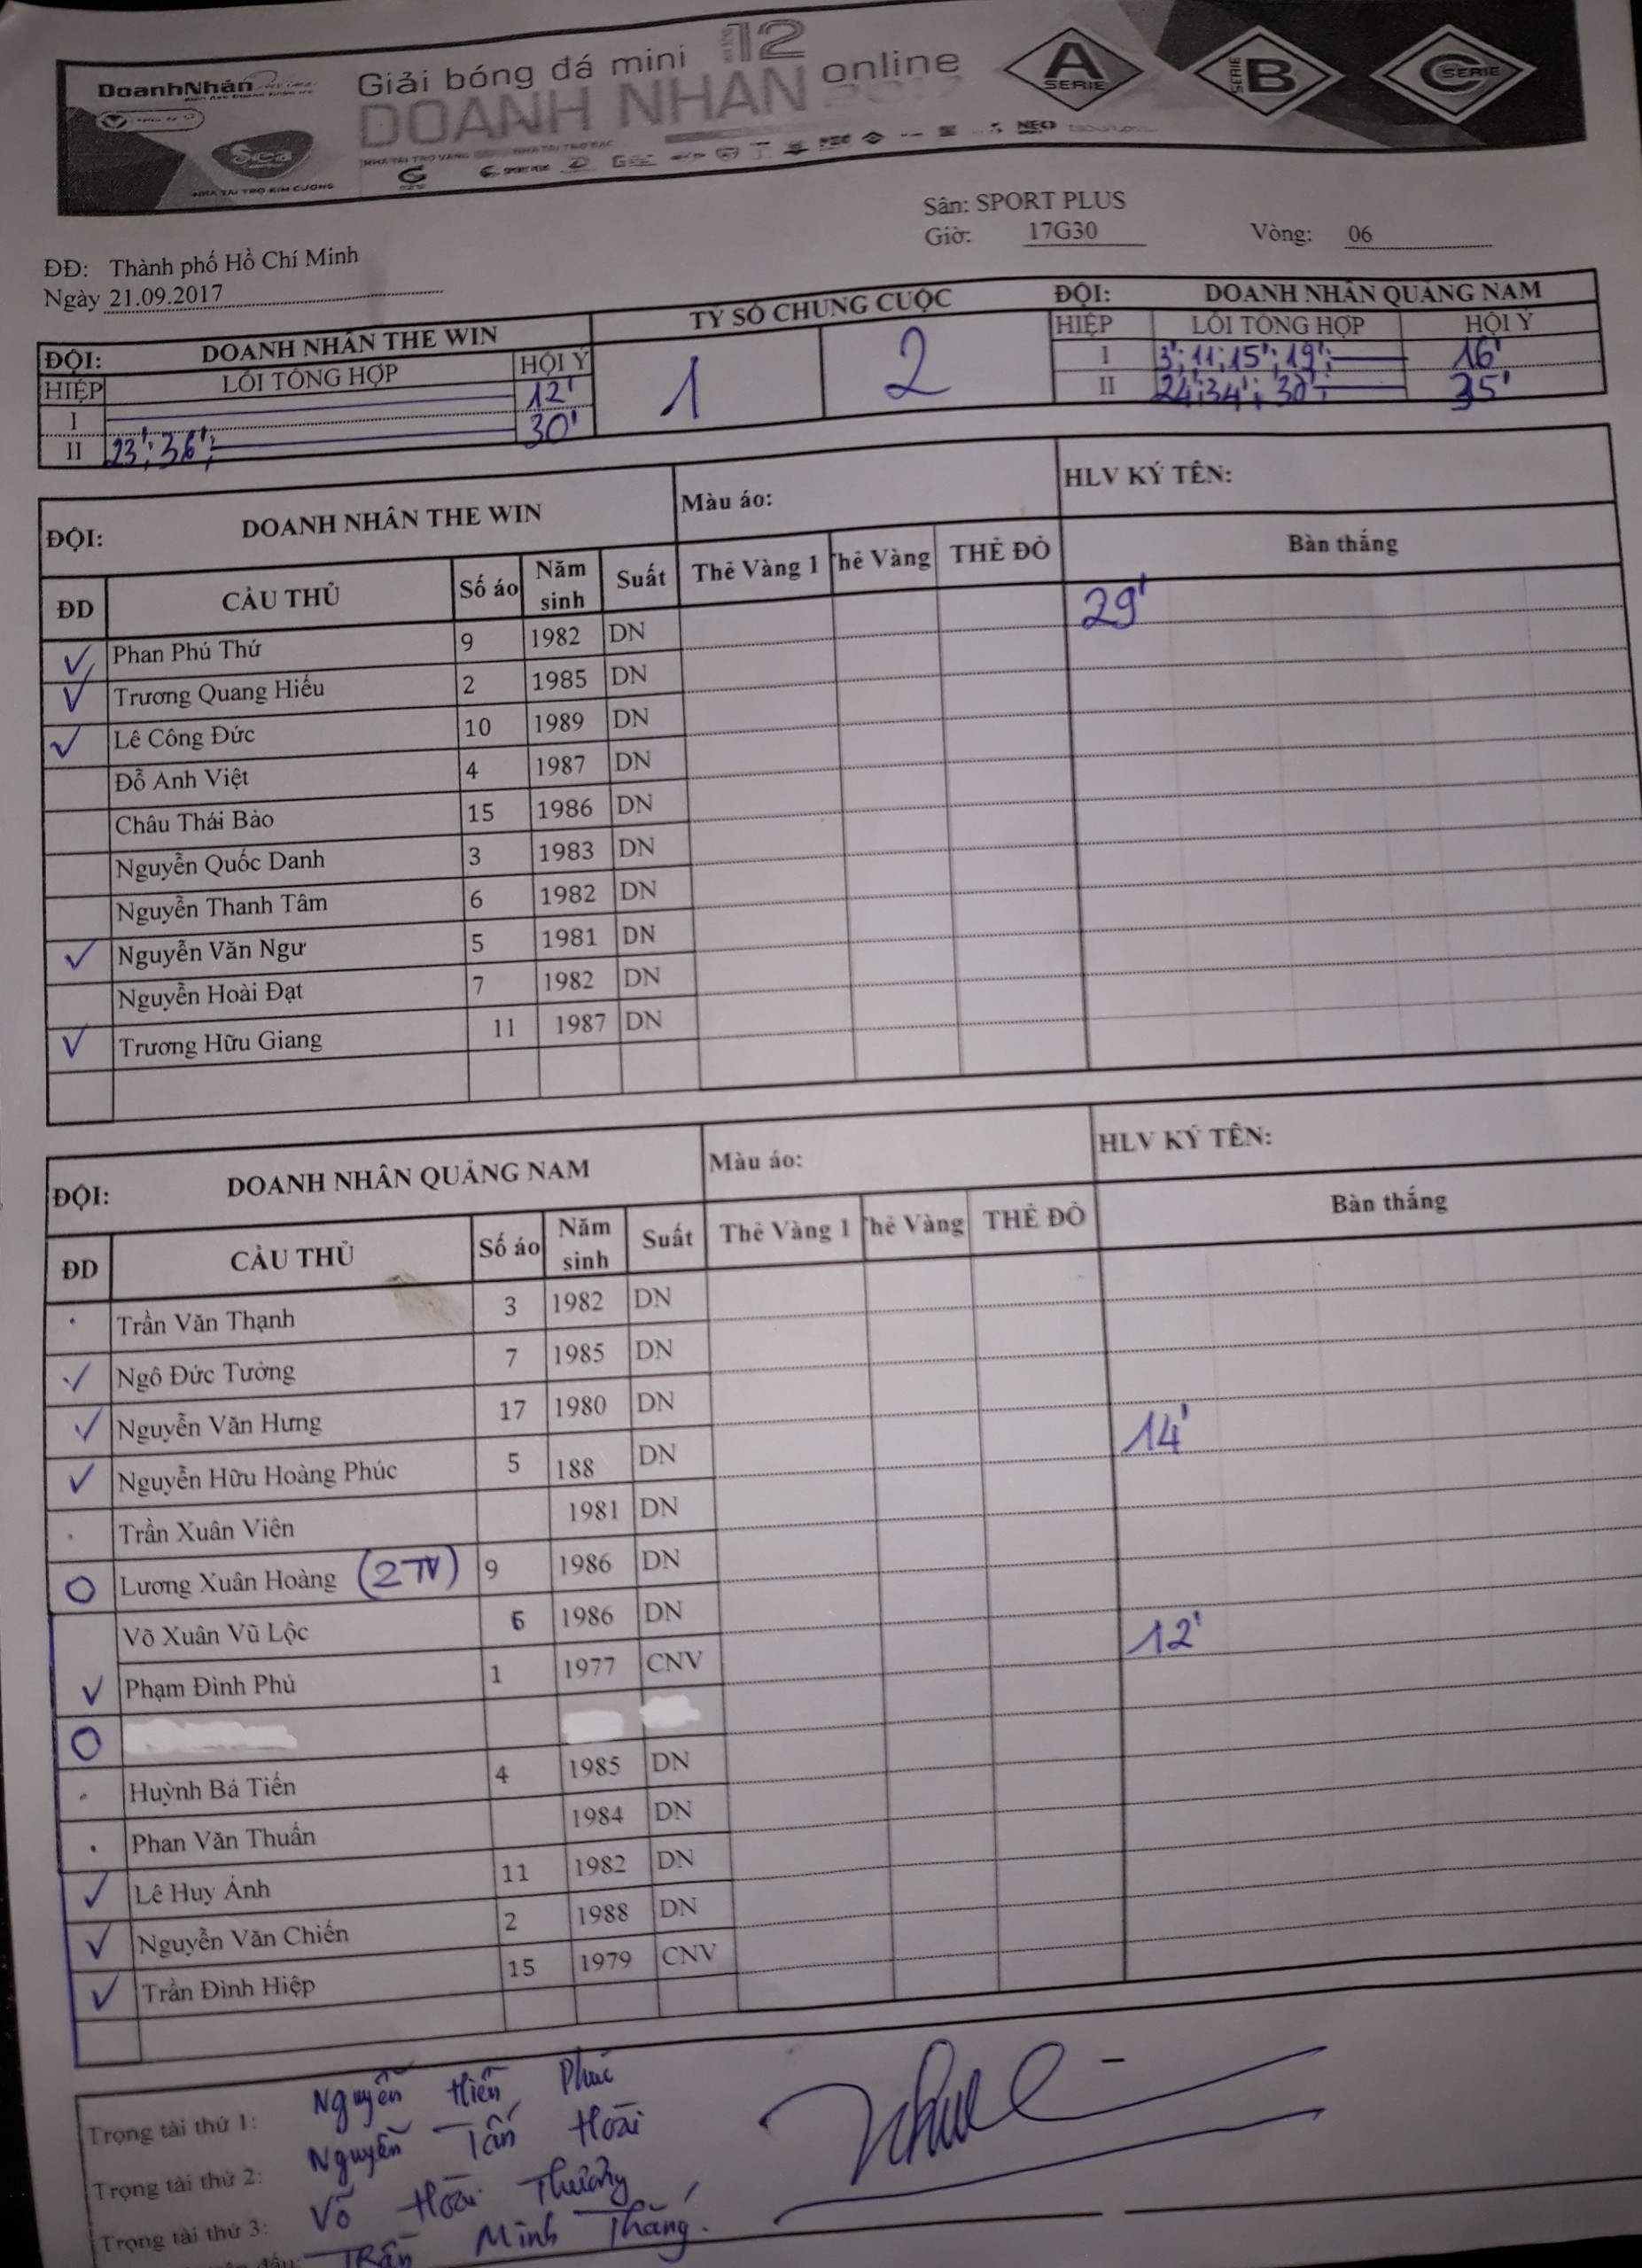 DoanhNhân
Giải bóng đá mini 12
DOANH NHAN online
A SERIE
SERIE B
C SERIE
Sea
NHÀ TÀI TRỢ KIM CƯƠNG
NHÀ TÀI TRỢ VÀNG
NHÀ TÀI TRỢ BẠC
SPORT PLUS
NEO
Sân: SPORT PLUS
Giờ: 17G30 Vòng: 06
ĐĐ: Thành phố Hồ Chí Minh
Ngày 21.09.2017
ĐỘI: DOANH NHÂN THE WIN TỶ SỐ CHUNG CUỘC ĐỘI: DOANH NHÂN QUẢNG NAM
HIỆP LỖI TỔNG HỢP HỘI Ý 1 2 HIỆP LỖI TỔNG HỢP HỘI Ý
I 12' I 3'; 11; 15'; 19'; 16'
II 23'; 36'; 30' II 24; 34'; 30'; 35'
ĐỘI: DOANH NHÂN THE WIN Màu áo: HLV KÝ TÊN:
ĐD CẦU THỦ Số áo Năm sinh Suất Thẻ Vàng 1 Thẻ Vàng THẺ ĐỎ Bàn thắng
✓ Phan Phú Thứ 9 1982 DN 29'
✓ Trương Quang Hiếu 2 1985 DN
✓ Lê Công Đức 10 1989 DN
Đỗ Anh Việt 4 1987 DN
Châu Thái Bảo 15 1986 DN
Nguyễn Quốc Danh 3 1983 DN
Nguyễn Thanh Tâm 6 1982 DN
✓ Nguyễn Văn Ngư 5 1981 DN
Nguyễn Hoài Đạt 7 1982 DN
✓ Trương Hữu Giang 11 1987 DN
ĐỘI: DOANH NHÂN QUẢNG NAM Màu áo: HLV KÝ TÊN:
ĐD CẦU THỦ Số áo Năm sinh Suất Thẻ Vàng 1 Thẻ Vàng THẺ ĐỎ Bàn thắng
Trần Văn Thạnh 3 1982 DN
✓ Ngô Đức Tưởng 7 1985 DN
✓ Nguyễn Văn Hưng 17 1980 DN
✓ Nguyễn Hữu Hoàng Phúc 5 188 DN 14'
Trần Xuân Viên 1981 DN
O Lương Xuân Hoàng (2TV) 9 1986 DN
Võ Xuân Vũ Lộc 6 1986 DN
✓ Phạm Đình Phú 1 1977 CNV 12'
O
Huỳnh Bá Tiến 4 1985 DN
Phan Văn Thuấn 1984 DN
✓ Lê Huy Ánh 11 1982 DN
✓ Nguyễn Văn Chiến 2 1988 DN
✓ Trần Đình Hiệp 15 1979 CNV
Trọng tài thứ 1: Nguyễn Hiền Phúc
Trọng tài thứ 2: Nguyễn Tấn Hoài
Trọng tài thứ 3: Võ Hoài Thương
Trần Minh Thắng.